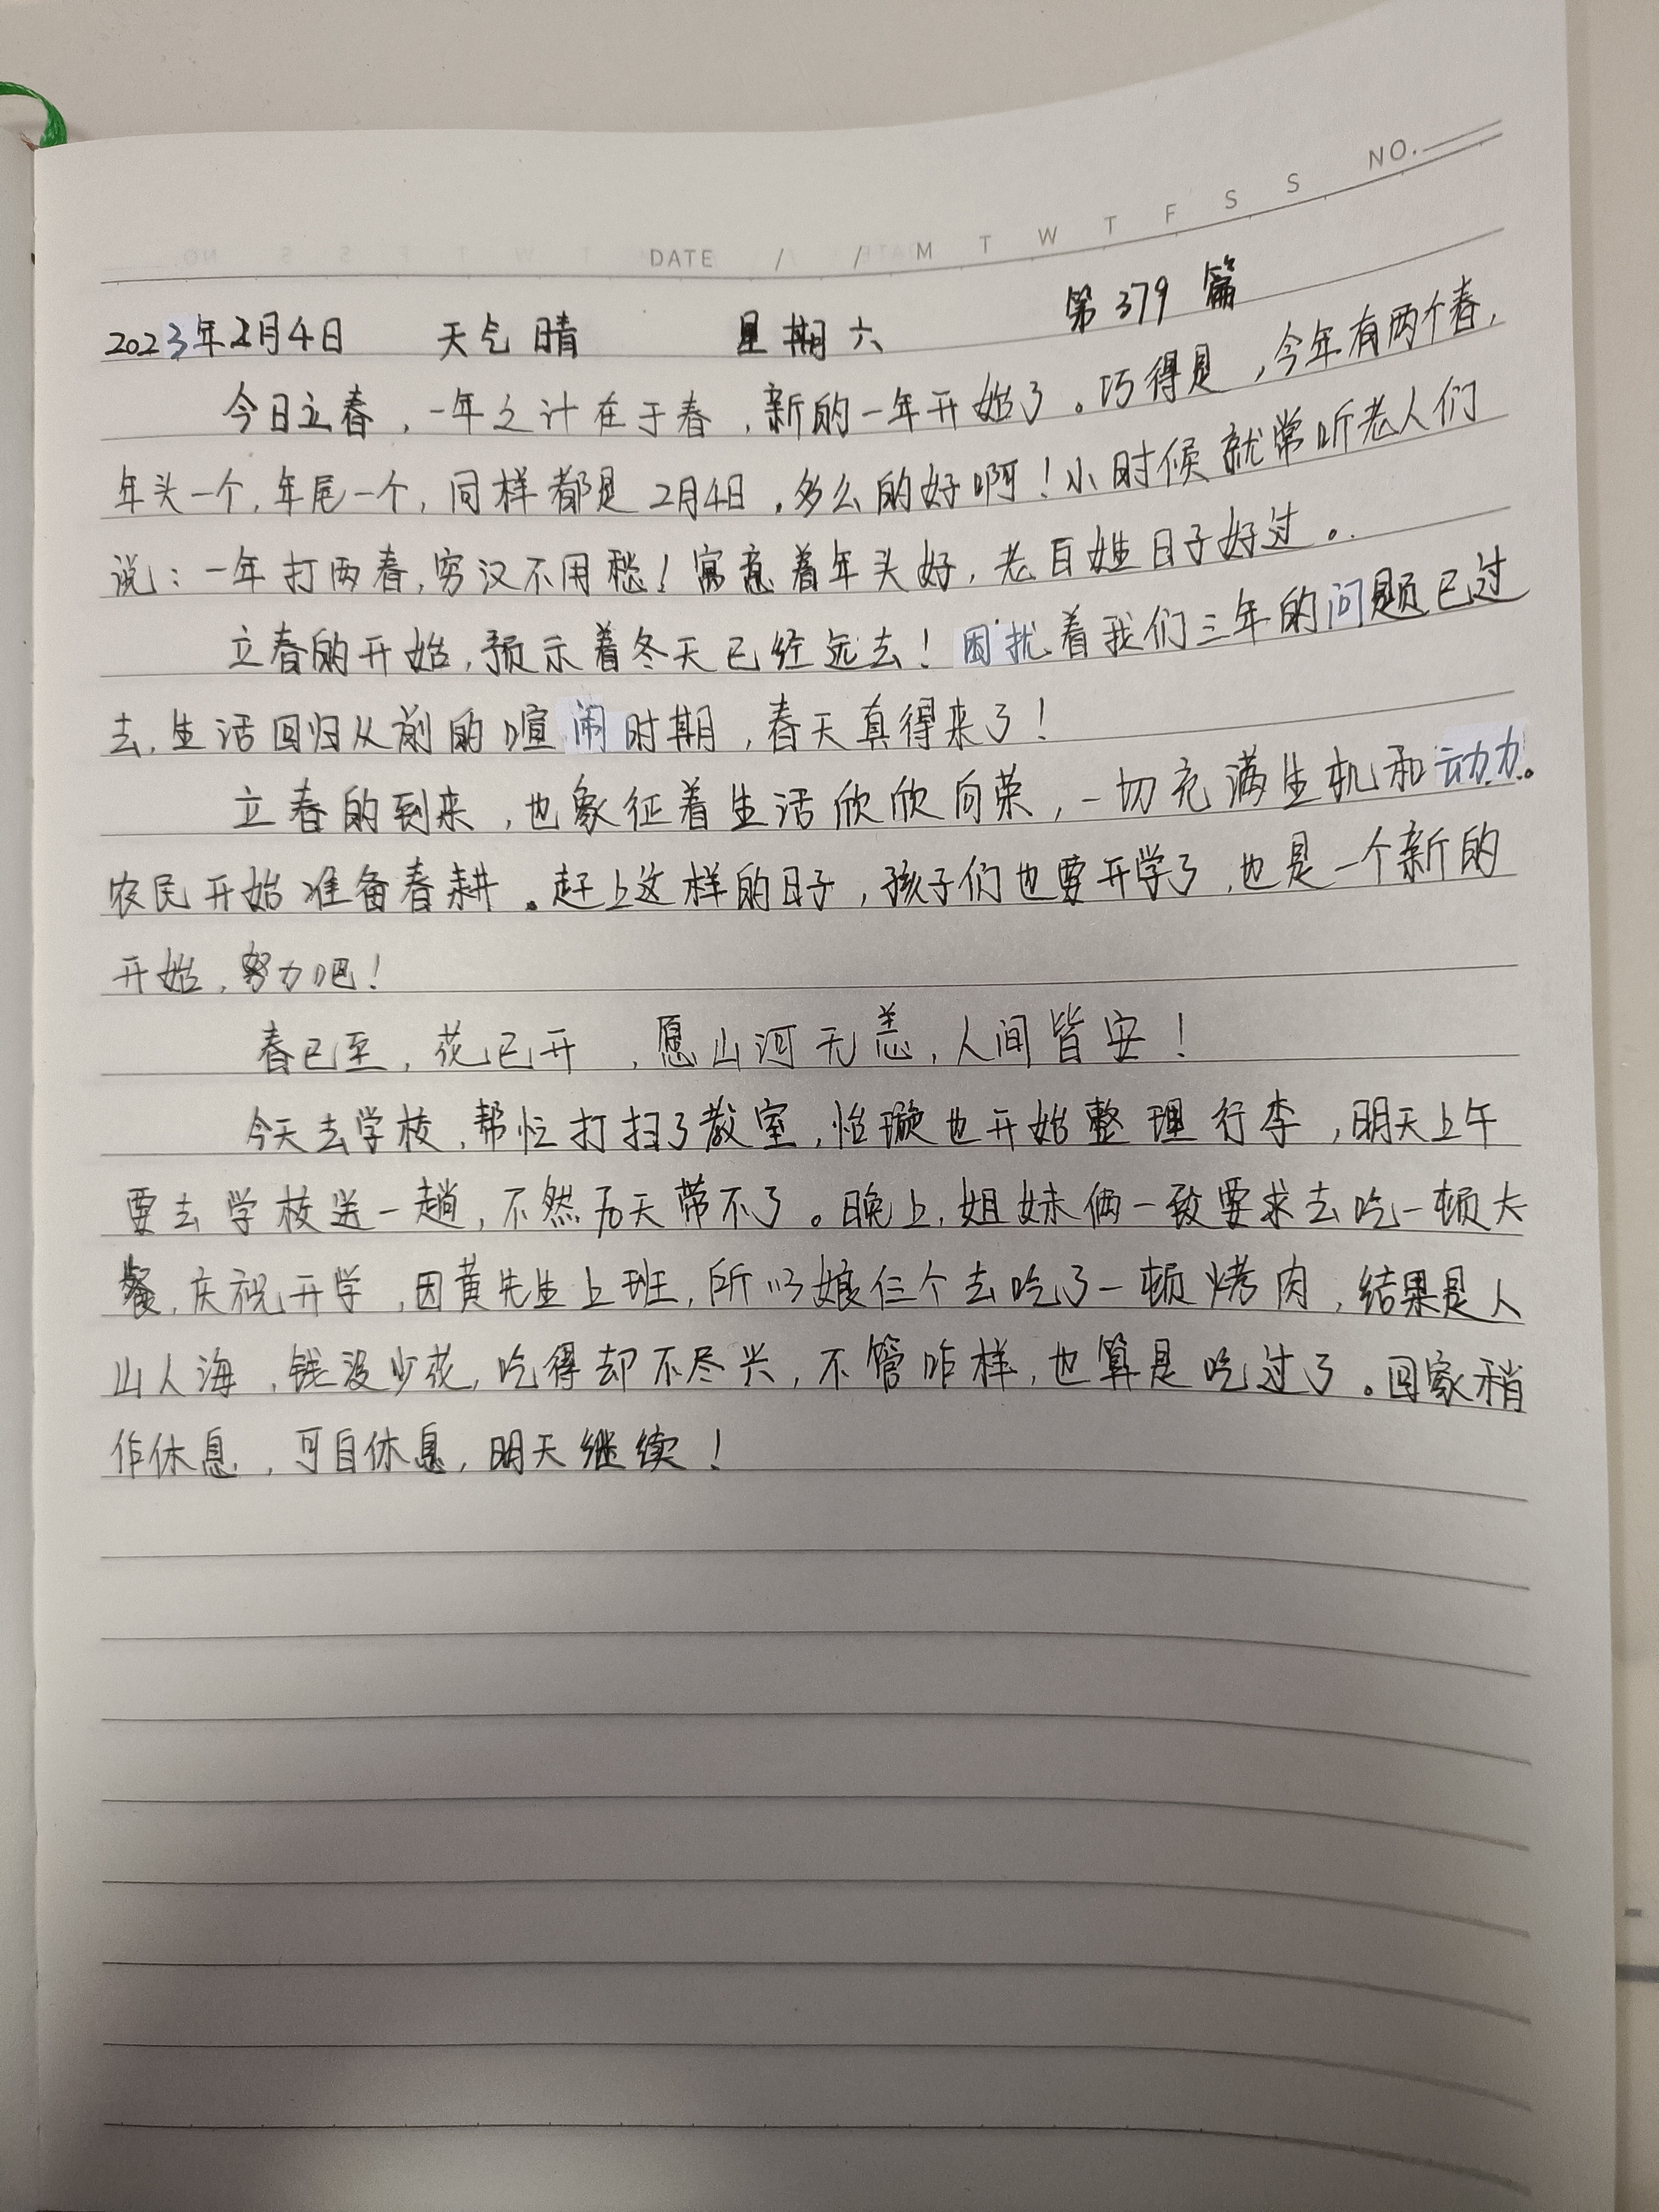 NO.
DATE / / M T W T F S S
2023年2月4日 天气晴 星期六 第379篇
今日立春，一年之计在于春，新的一年开始了。巧得是，今年有两个春，
年头一个，年尾一个，同样都是2月4日，多么的好啊！小时候就常听老人们
说：一年打两春，穷汉不用愁！寓意着年头好，老百姓日子好过。
立春的开始，预示着冬天已经远去！困扰着我们三年的问题已过
去，生活回归从前的喧闹时期，春天真得来了！
立春的到来，也象征着生活欣欣向荣，一切充满生机和动力。
农民开始准备春耕。赶上这样的日子，孩子们也要开学了，也是一个新的
开始，努力吧！
春已至，花已开，愿山河无恙，人间皆安！
今天去学校，帮忙打扫了教室，怡璇也开始整理行李，明天上午
要去学校送一趟，不然后天带不了。晚上，姐妹俩一致要求去吃一顿大
餐，庆祝开学，因黄先生上班，所以娘仨个去吃了一顿烤肉，结果是人
山人海，钱没少花，吃得却不尽兴，不管咋样，也算是吃过了。回家稍
作休息，可自休息，明天继续！